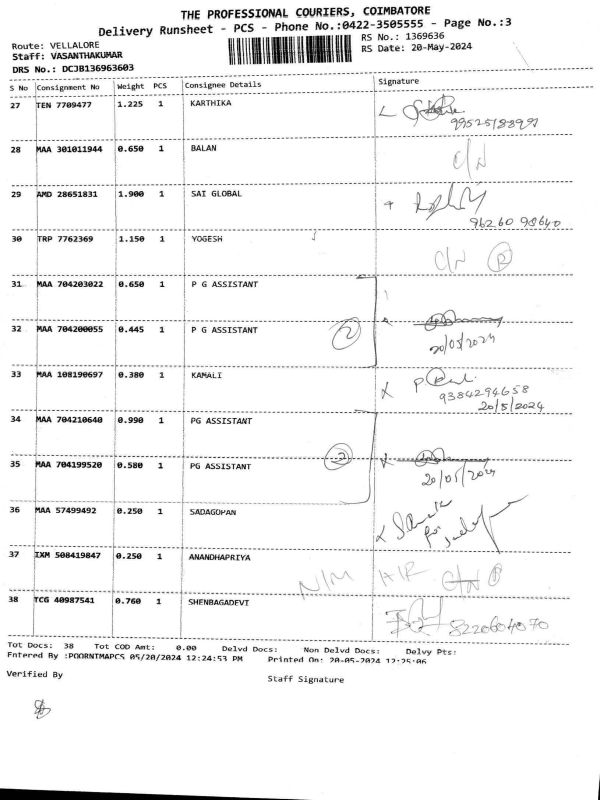 THE PROFESSIONAL COURIERS, COIMBATORE
Delivery Runsheet - PCS - Phone No.:0422-3505555 - Page No.:3
Route: VELLALORE
RS No.: 1369636
Staff: VASANTHAKUMAR
RS Date: 20-May-2024
DRS No.: DCJB136963603
S No Consignment No Weight PCS Consignee Details Signature
27 TEN 7709477 1.225 1 KARTHIKA
28 MAA 301011944 0.650 1 BALAN C/N
29 AMD 28651831 1.900 1 SAI GLOBAL
96260 98640
30 TRP 7762369 1.150 1 YOGESH C/N R
31 MAA 704203022 0.650 1 P G ASSISTANT
32 MAA 704200055 0.445 1 P G ASSISTANT 2
20/05/2024
33 MAA 108190697 0.380 1 KAMALI
9384294658
20/5/2024
34 MAA 704210640 0.990 1 PG ASSISTANT
35 MAA 704199520 0.580 1 PG ASSISTANT 2
20/05/2024
36 MAA 57499492 0.250 1 SADAGOPAN
37 IXM 508419847 0.250 1 ANANDHAPRIYA N/M
38 TCG 40987541 0.760 1 SHENBAGADEVI 8220604070
Tot Docs: 38 Tot COD Amt: 0.00 Delvd Docs: Non Delvd Docs: Delvy Pts:
Entered By :POORNIMAPCS 05/20/2024 12:24:53 PM Printed On: 20-05-2024 12:25:06
Verified By Staff Signature